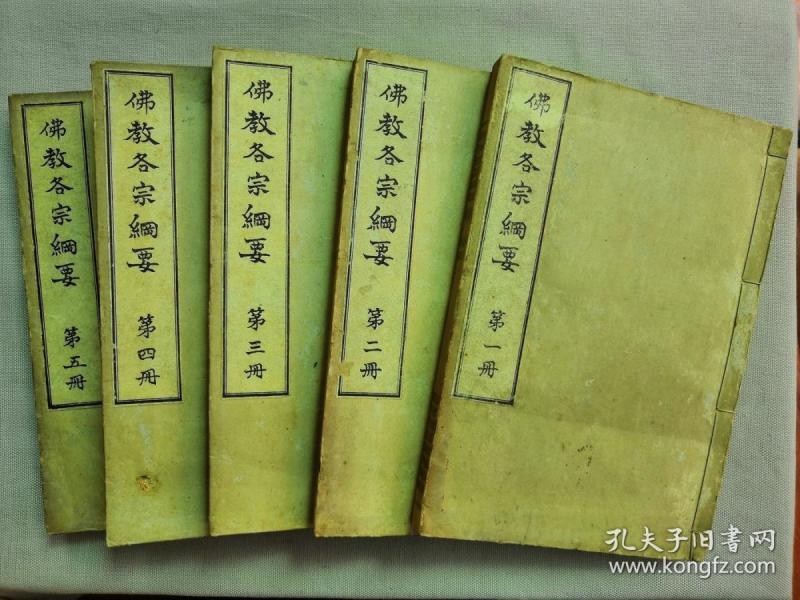 佛教各宗綱要 第一冊
佛教各宗綱要 第二冊
佛教各宗綱要 第三冊
佛教各宗綱要 第四冊
佛教各宗綱要 第五冊
孔夫子旧書网
www.kongfz.com